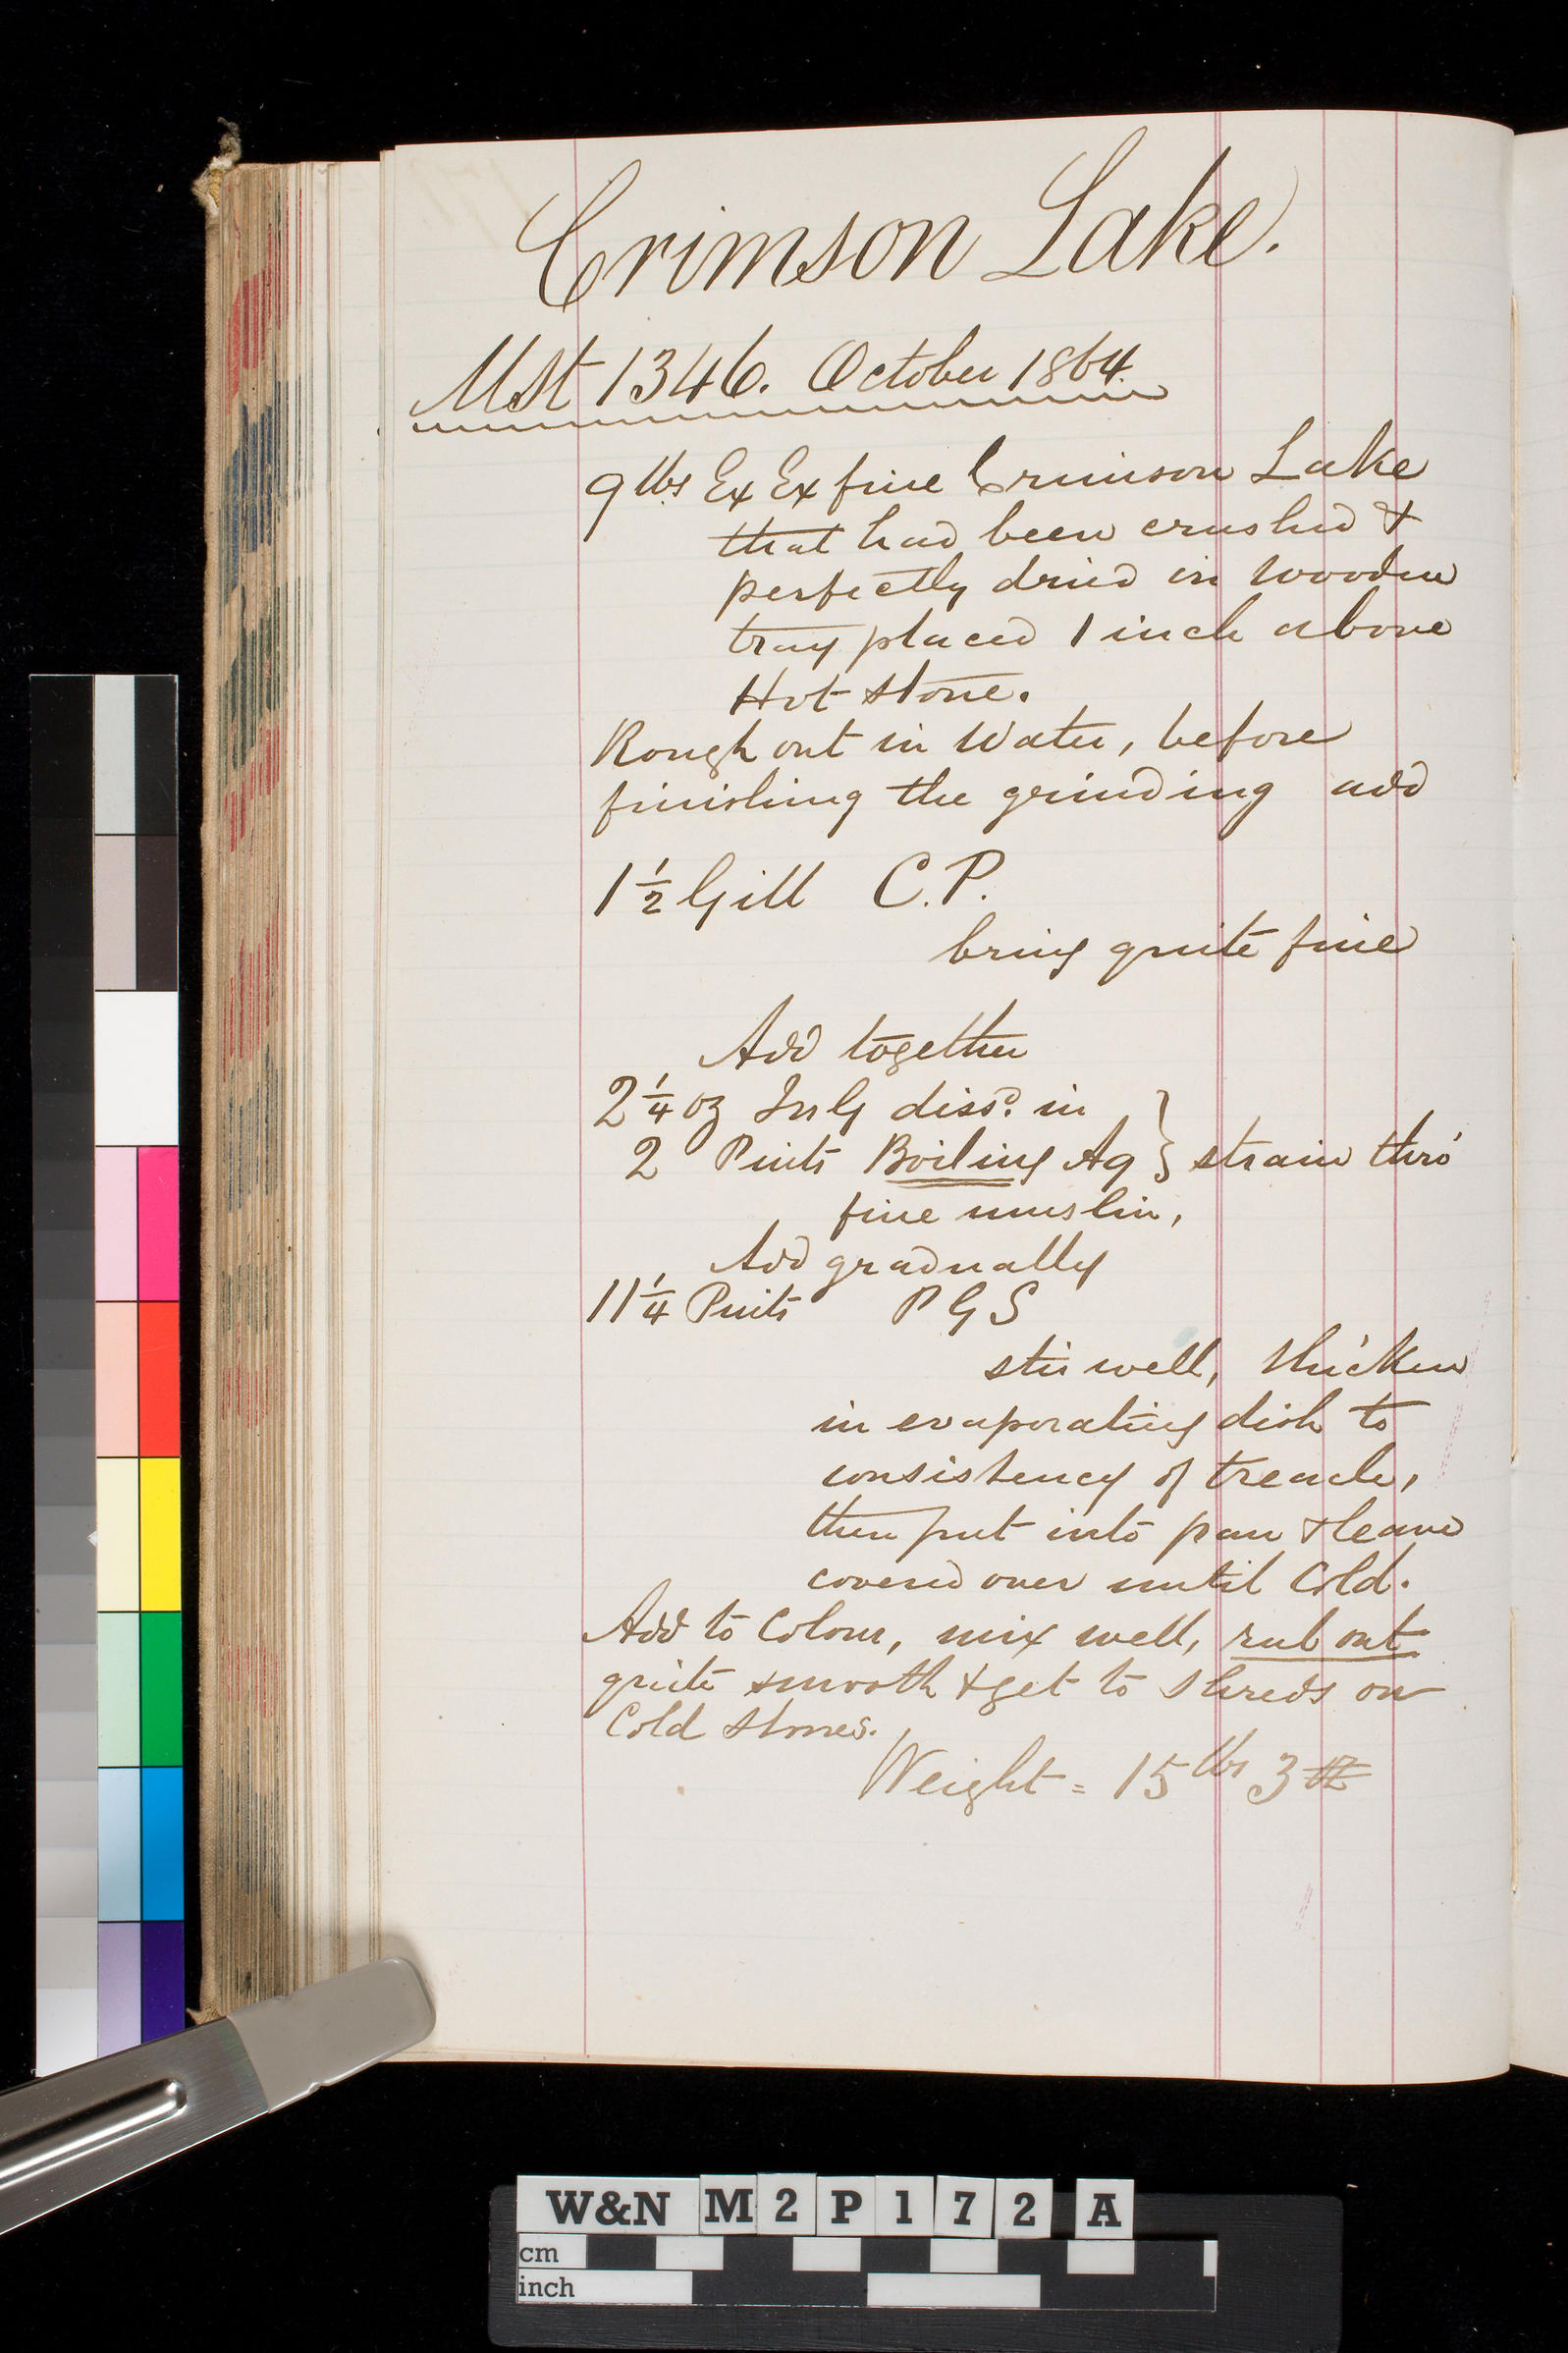 Crimson Lake.
Mst 1346. October 1864.
9 lbs Ex Ex fine Crimson Lake
that had been crushed &
perfectly dried in wooden
tray placed 1 inch above
Hot stone.
Rough out in Water, before
finishing the grinding add
1 1/2 Gill C.P.
bring quite fine
Add together
2 1/4 oz In G dissd. in
2 Pints Boiling Aq } strain thro'
fine muslin,
Add gradually
11 1/4 Pints P G S
stir well, thicken
in evaporating dish to
consistency of treacle,
then put into pan & leave
covered over until Cold.
Add to Colour, mix well, rub out
quite smooth & get to shreds on
Cold stones.
Weight = 15 lbs 3
W&N M2P172 A
cm
inch